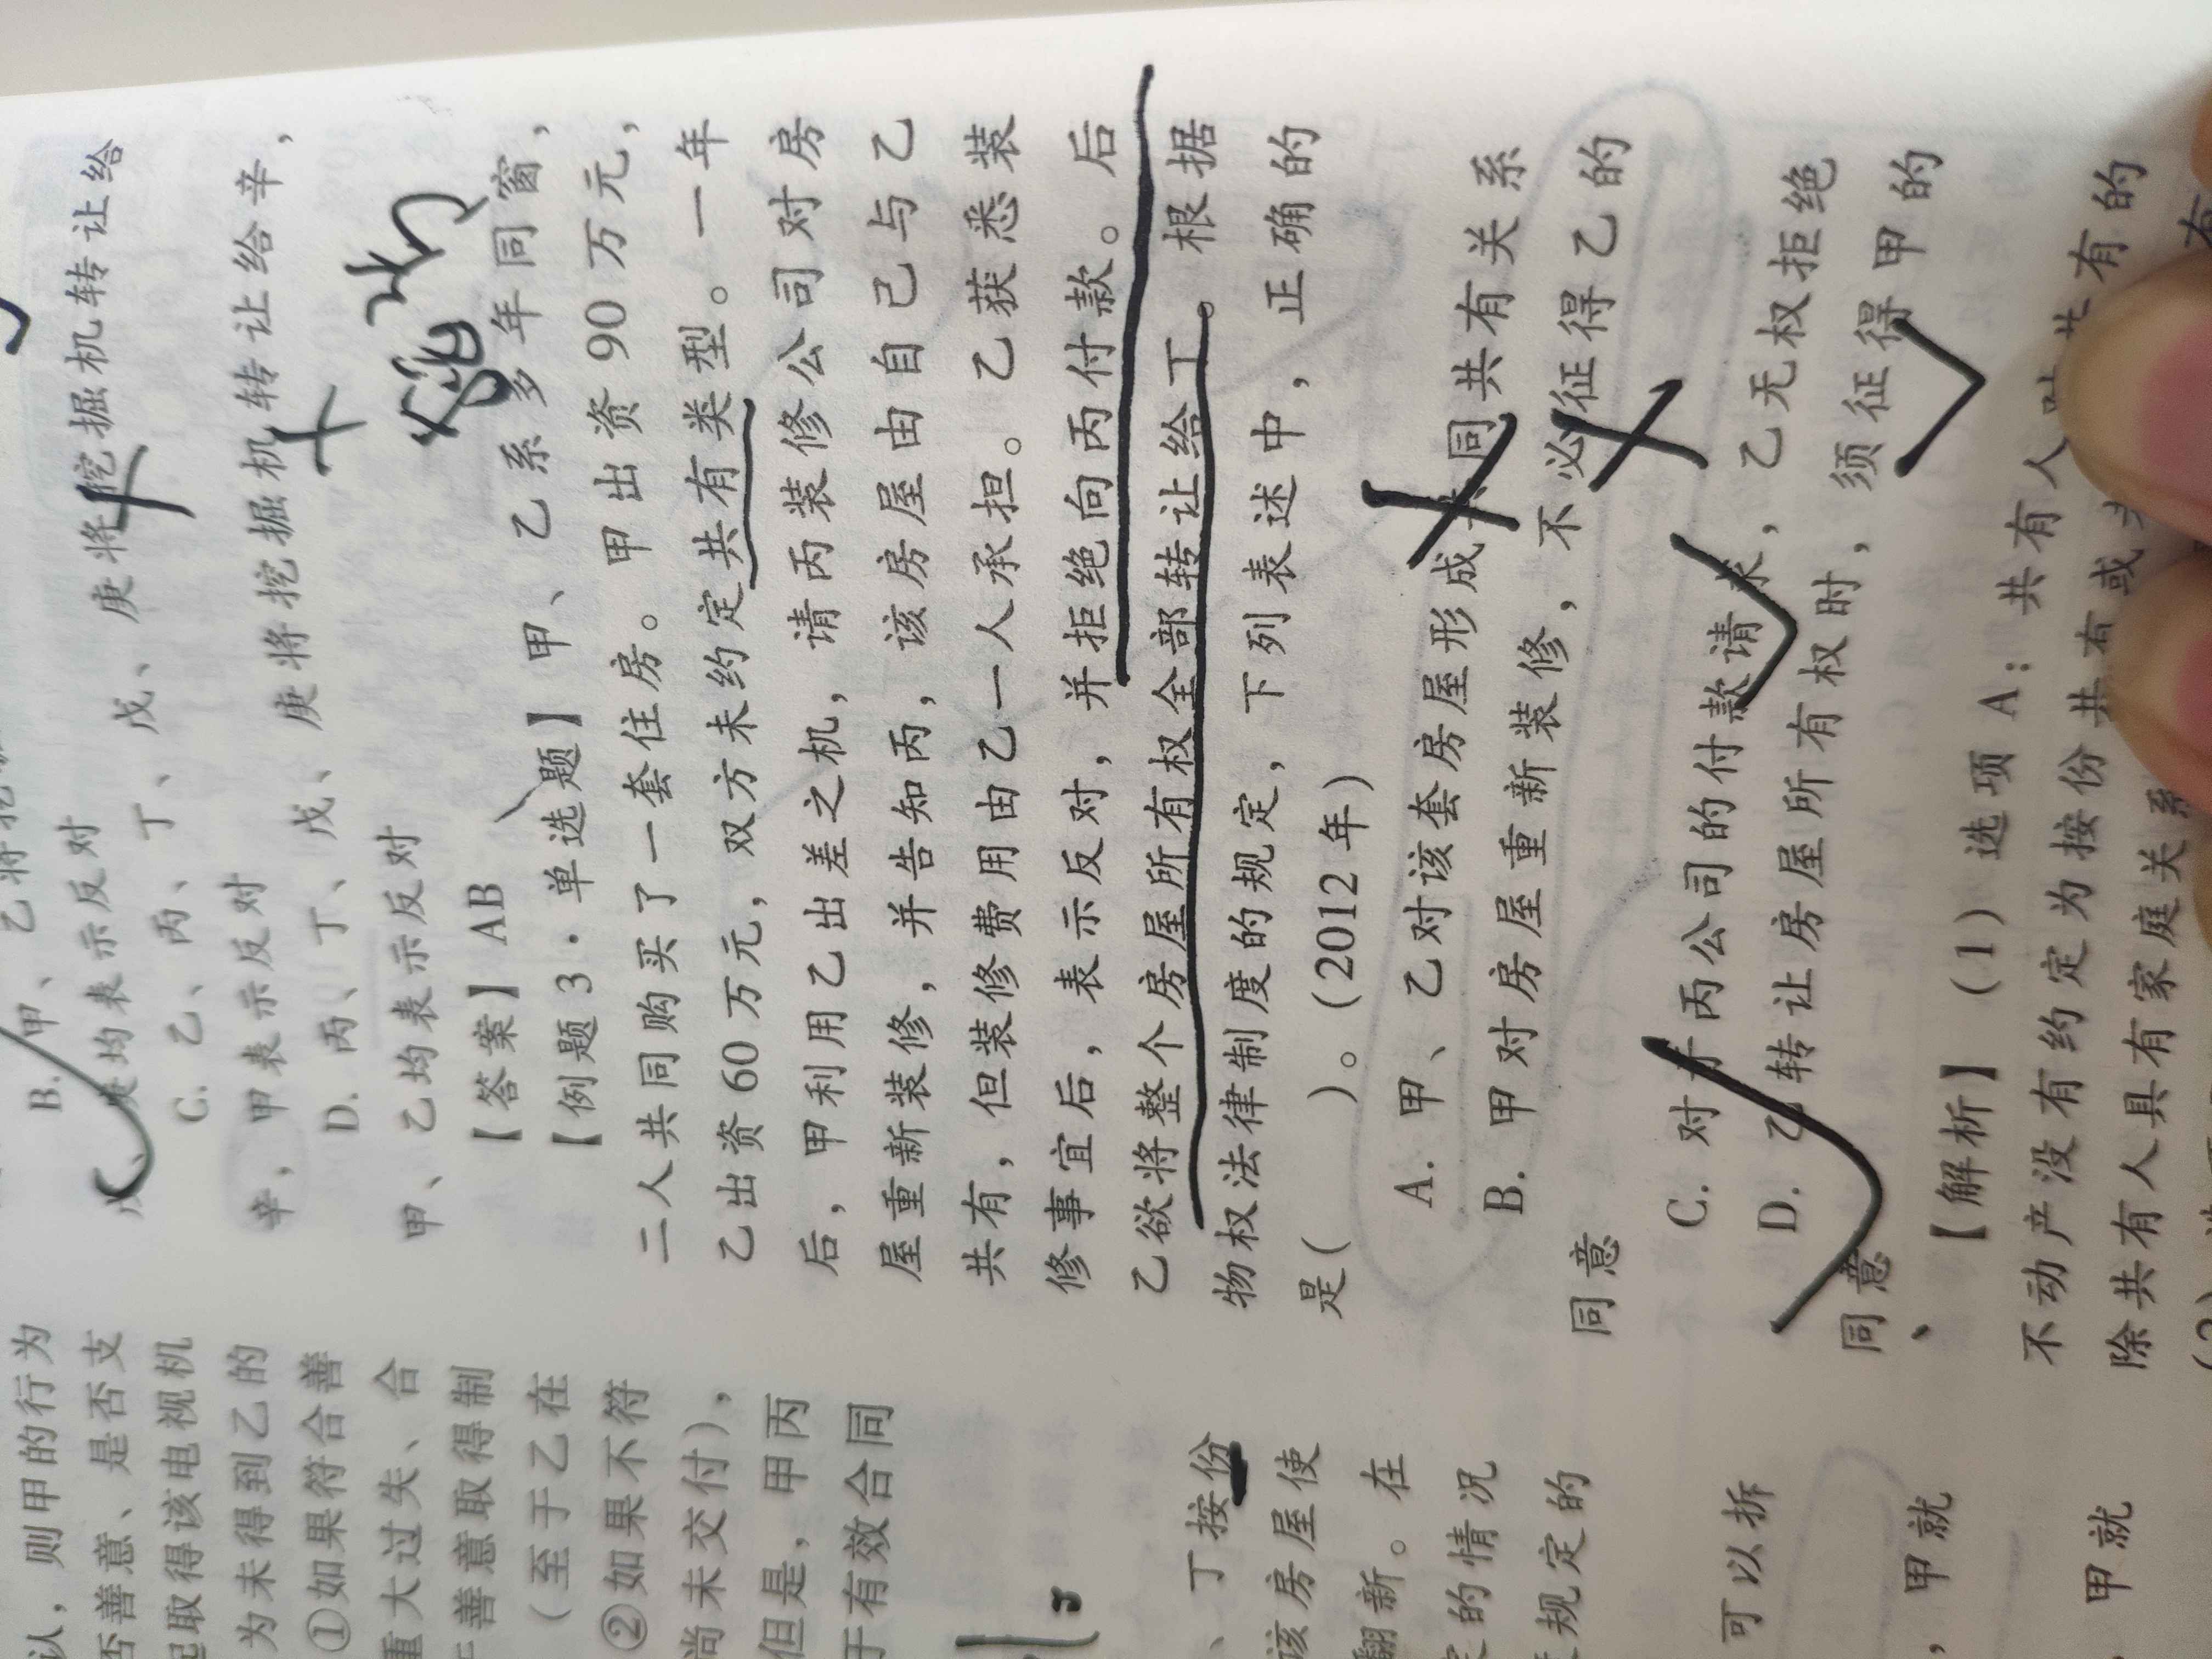 认，则甲的行为
否善意、是否支
起取得该电视机
为未得到乙的
①如果符合善
重大过失、合
善意取得制
（至于乙在
②如果不符
尚未交付），
但是，甲丙
于有效合同
、丁按份
该房屋使
翻新。在
的情况
规定的
可以拆
，甲就
，甲就
B. 甲、乙将挖
戊、庚均表示反对
C. 乙、丙、丁、戊、庚将挖掘机转让给
辛，甲表示反对
D. 丙、丁、戊、庚将挖掘机转让给辛，
甲、乙均表示反对
【答案】AB
【例题3·单选题】甲、乙系多年同窗，
二人共同购买了一套住房。甲出资90万元，
乙出资60万元，双方未约定共有类型。一年
后，甲利用乙出差之机，请丙装修公司对房
屋重新装修，并告知丙，该房屋由自己与乙
共有，但装修费用由乙一人承担。乙获悉装
修事宜后，表示反对，并拒绝向丙付款。后
乙欲将整个房屋所有权全部转让给丁。根据
物权法律制度的规定，下列表述中，正确的
是（ ）。（2012年）
A. 甲、乙对该套房屋形成共同共有关系
B. 甲对房屋重新装修，不必征得乙的
同意
C. 对于丙公司的付款请求，乙无权拒绝
D. 乙转让房屋所有权时，须征得甲的
同意
【解析】（1）选项A：共有人对共有的
不动产没有约定为按份共有或
除共有人具有家庭关系